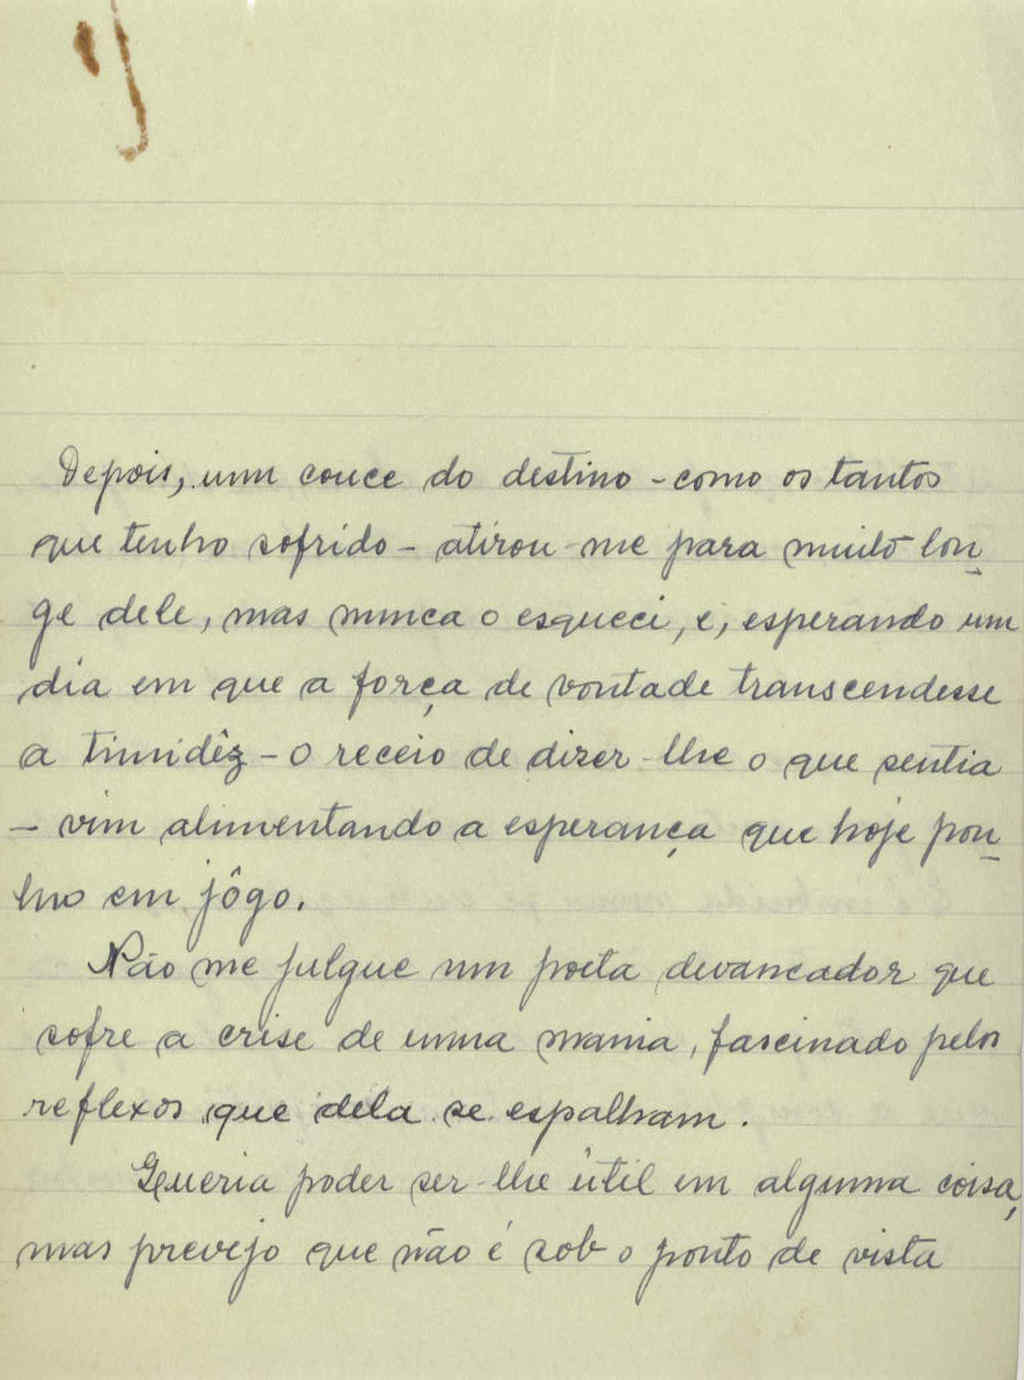 Depois, um couce do destino - como os tantos
que tenho sofrido - atirou-me para muito lon-
ge dele, mas nunca o esqueci, e, esperando um
dia em que a força de vontade transcendesse
a timidêz - o receio de dizer-lhe o que sentia
- vim alimentando a esperança que hoje pon-
ho em jôgo.
Não me julgue um poeta devaneador que
sofre a crise de uma mania, fascinado pelos
reflexos que dela se espalham.
Queria poder ser-lhe útil em alguma coisa,
mas prevejo que não é sob o ponto de vista